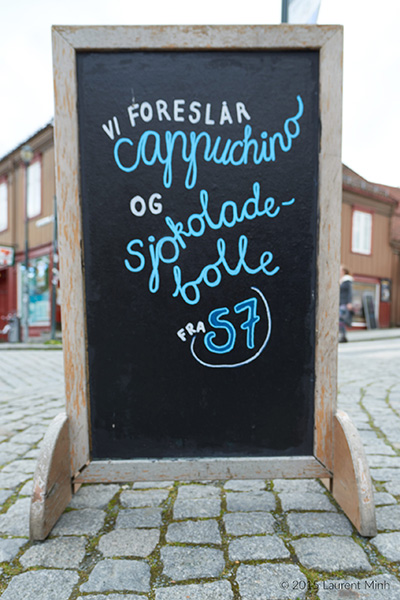 VI FORESLÅR
cappuchino
OG
sjokolade-
bolle
FRA 57
© 2015 Laurent Minh